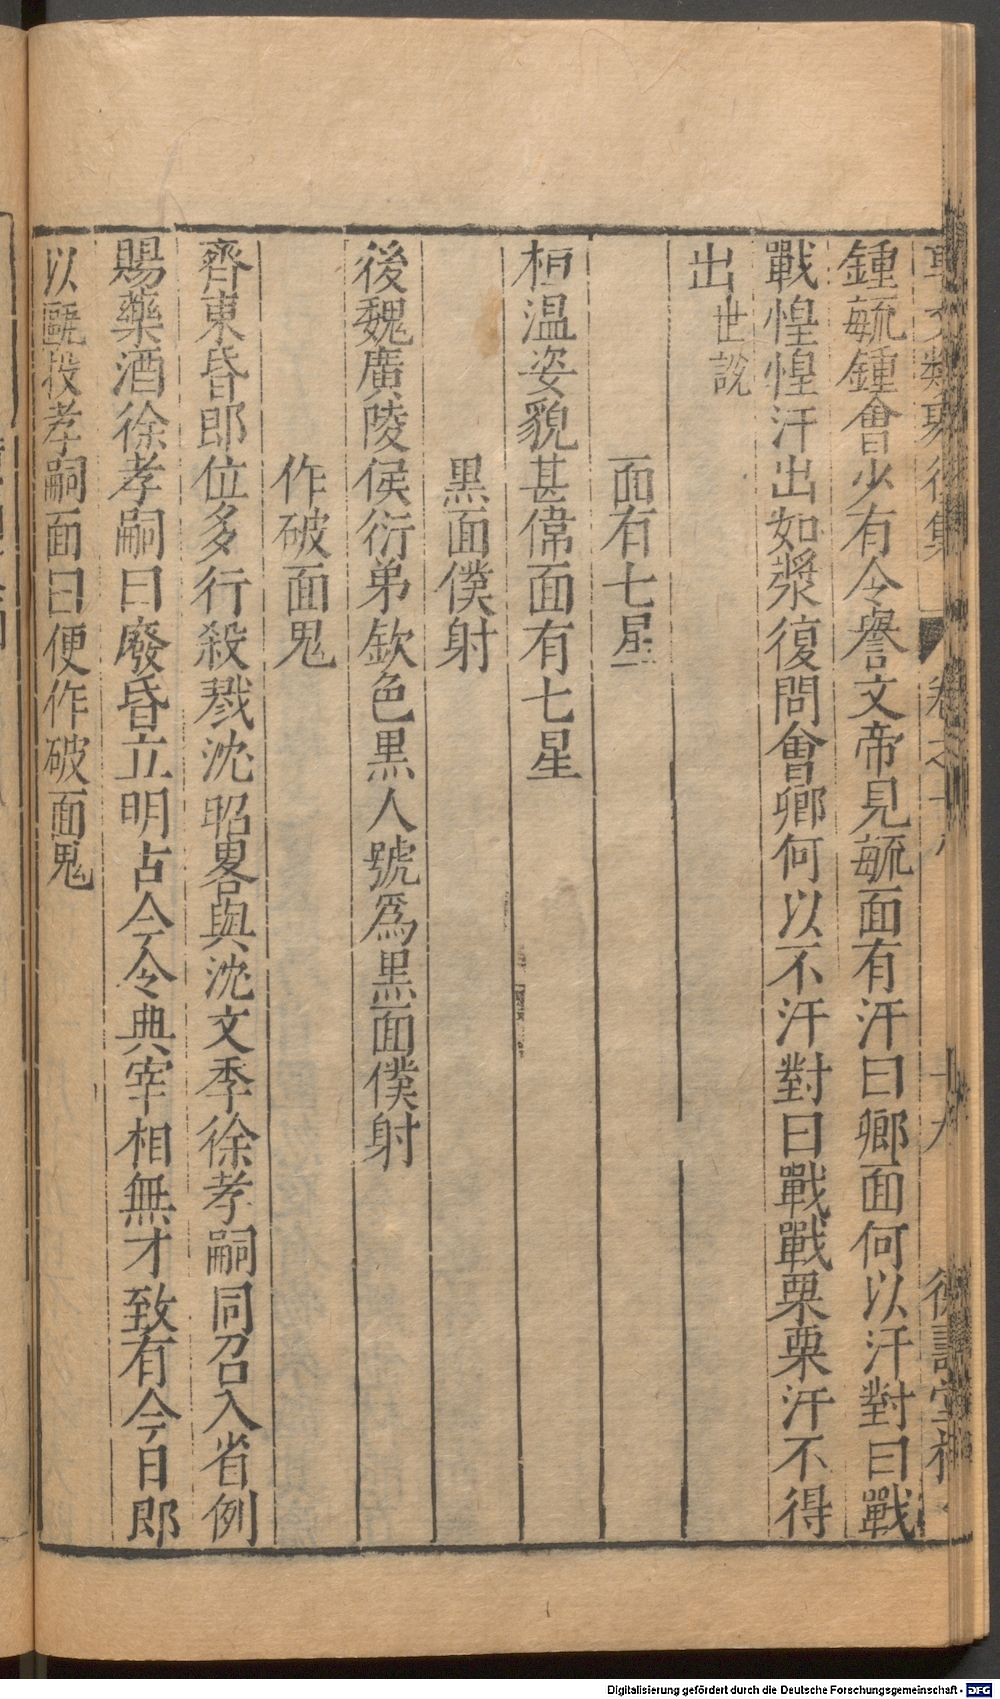 事文類聚後集 卷之十八 十九 德壽堂梓
鍾毓鍾會少有令譽文帝見毓面有汗曰卿面何以汗對曰戰
戰惶惶汗出如漿復問會卿何以不汗對曰戰戰栗栗汗不得
出 世說
面有七星
桓温姿貌甚偉面有七星
黑面僕射
後魏廣陵侯衍弟欽色黑人號爲黑面僕射
作破面鬼
齊東昏郎位多行殺戮沈昭畧與沈文季徐孝嗣同召入省例
賜藥酒徐孝嗣曰廢昏立明占今令典宰相無才致有今日郎
以甌投孝嗣面曰便作破面鬼
Digitalisierung gefördert durch die Deutsche Forschungsgemeinschaft - DFG